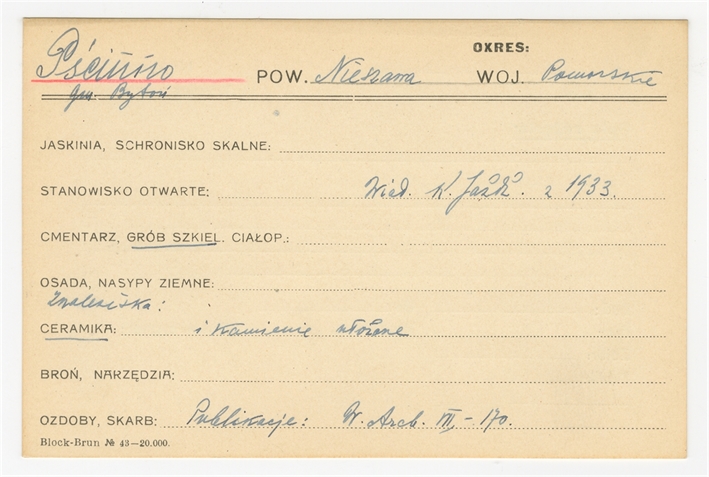 OKRES:
Pścinno POW. Nieszawa WOJ. Pomorskie
gm. Bytoń
JASKINIA, SCHRONISKO SKALNE:
STANOWISKO OTWARTE: Wiad. K. Jażdż. z 1933.
CMENTARZ, GRÓB SZKIEL. CIAŁOP.:
OSADA, NASYPY ZIEMNE:
Znaleziska:
CERAMIKA: i kamienie włożone
BROŃ, NARZĘDZIA:
OZDOBY, SKARB: Publikacje: W. Arch. XII,-170.
Block-Brun № 43—20.000.